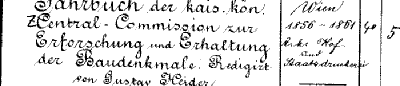 Jahrbuch der kais. kön. Wien
Z Central-Commission zur 1856-1861 4°
Erforschung und Erhaltung K.k. Hof 5
der Baudenkmale. Redigirt und Staatsdruckerei
von Gustav Heider